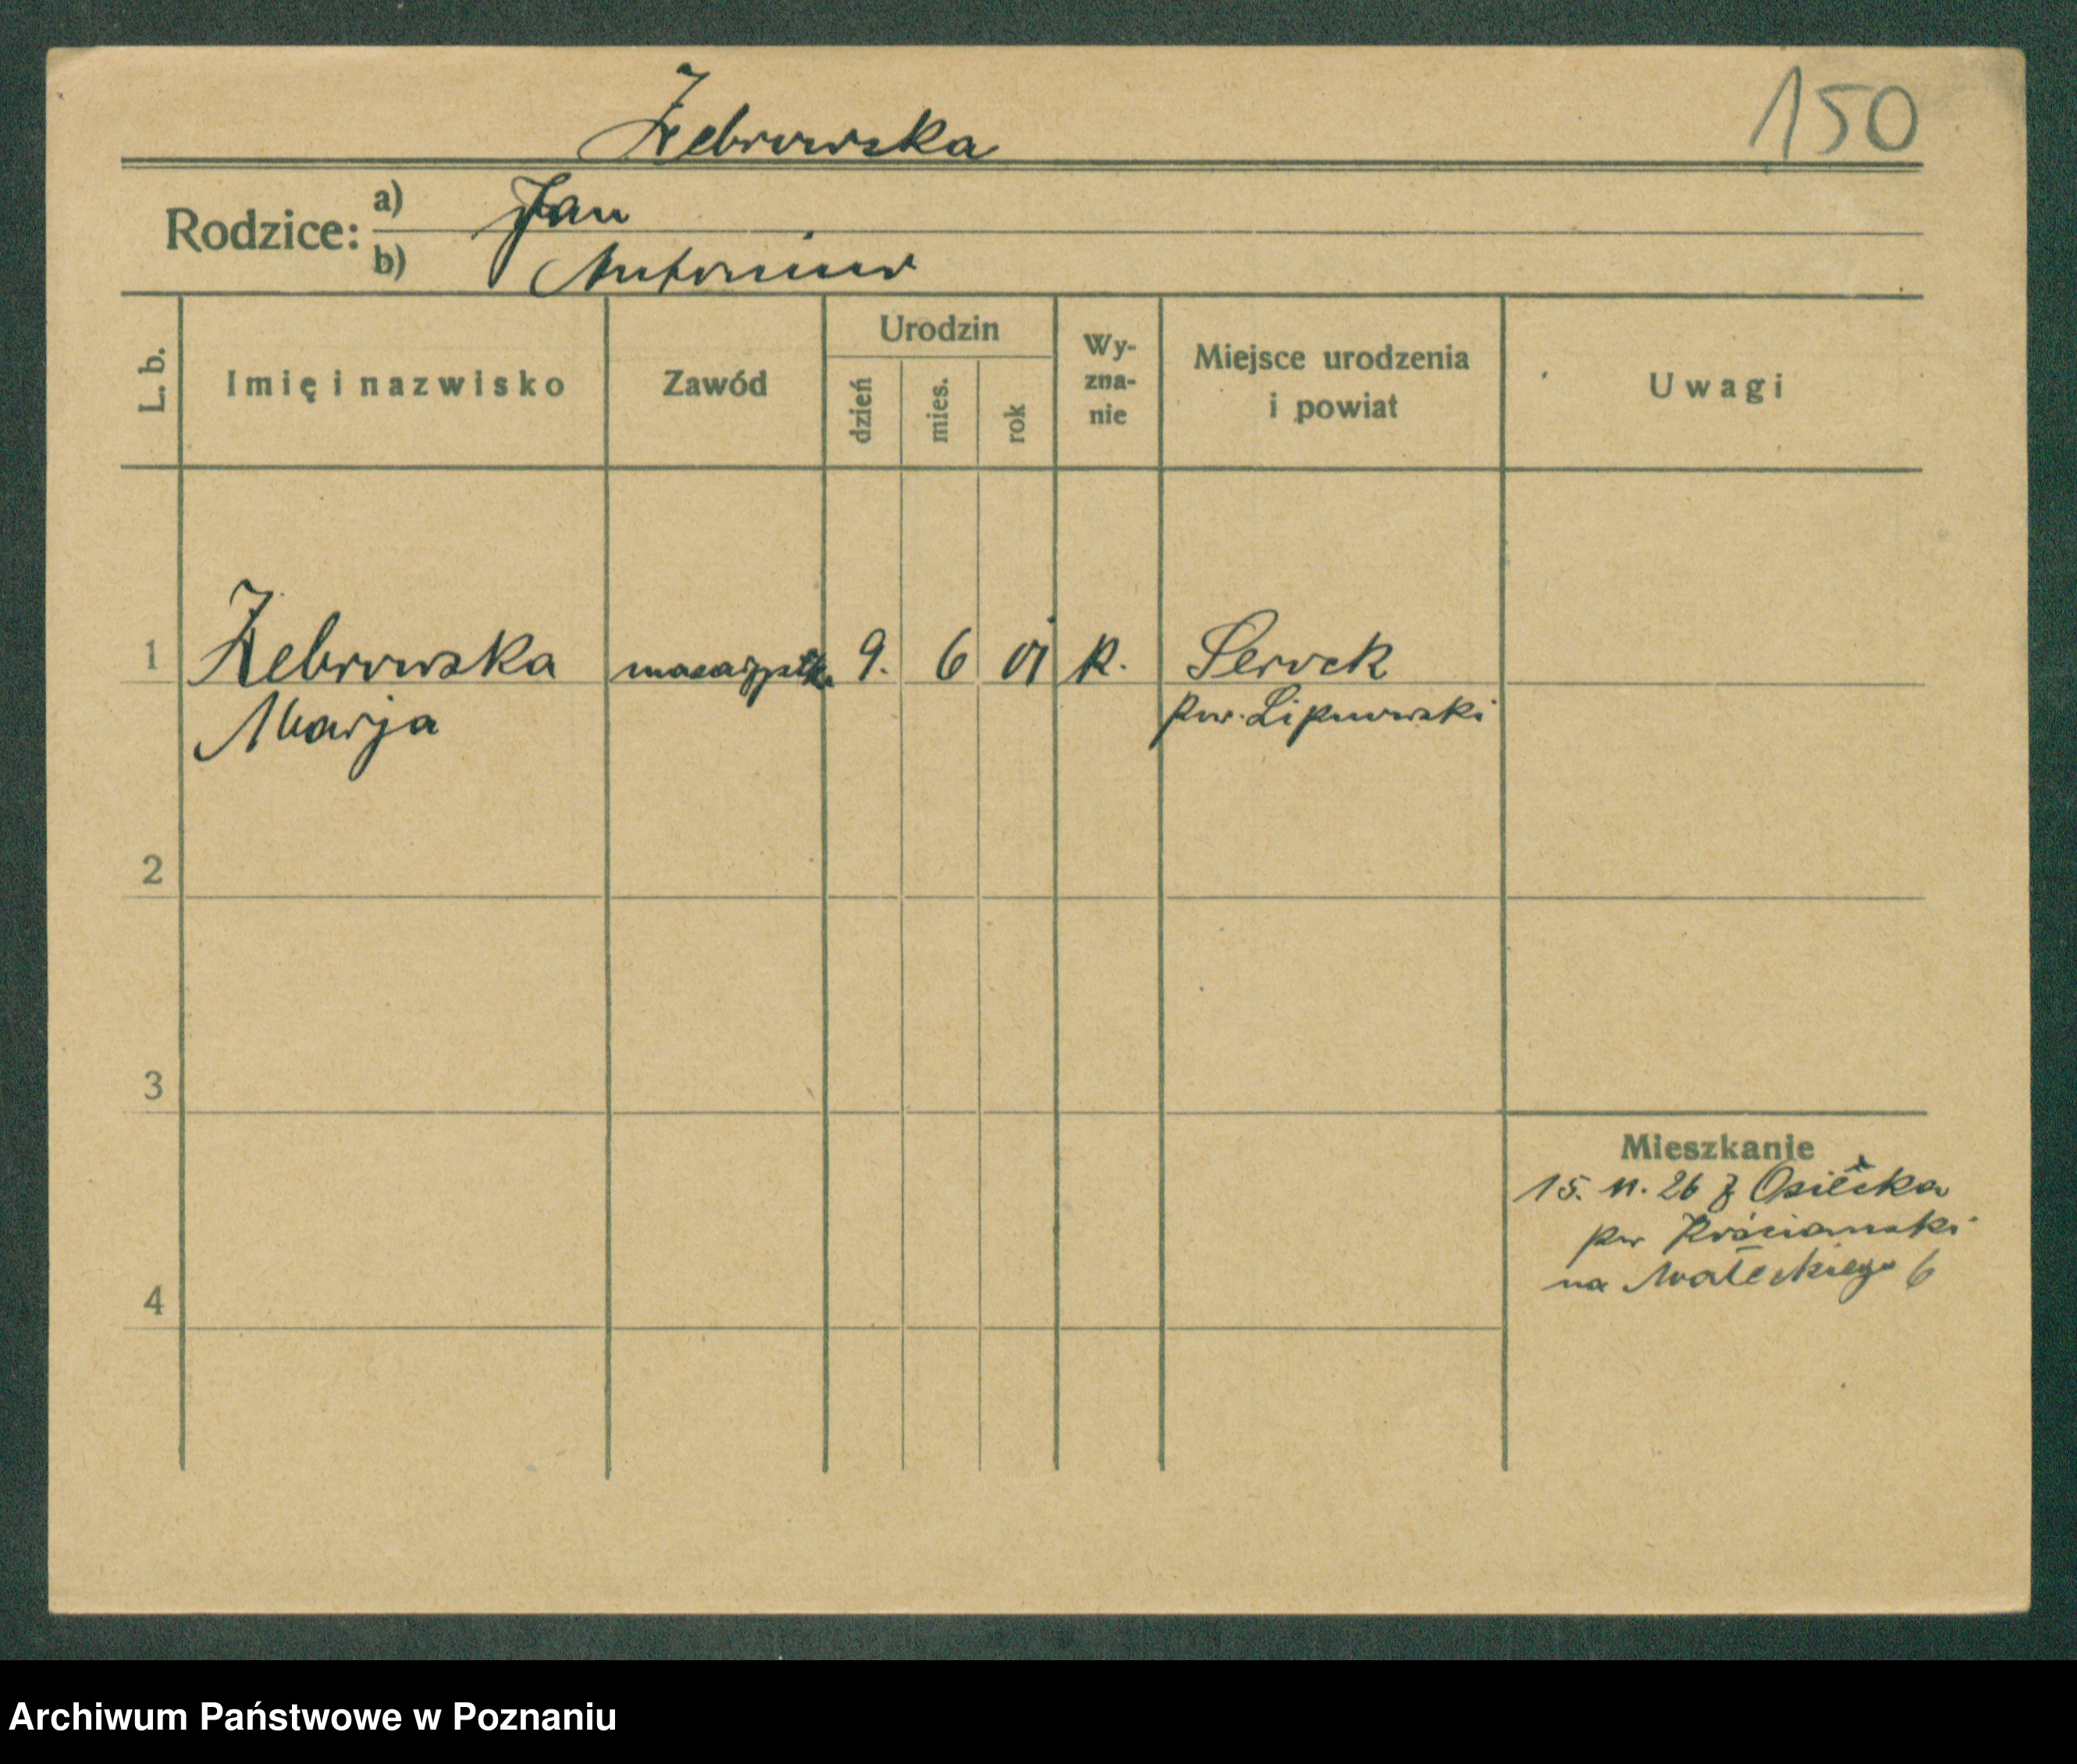 Żebrowska
150
Rodzice:
a) Jan
b) Antonina
L. b.
Imię i nazwisko
Zawód
Urodzin
dzień
mies.
rok
Wy-
zna-
nie
Miejsce urodzenia
i powiat
Uwagi
1 Żebrowska 9. 6 01 k. Serock
Marja pow. Lipnowski
2
3
4
Mieszkanie
15. 11. 26 z Osiecka
pow Kościański
na Małeckiego 6
Archiwum Państwowe w Poznaniu